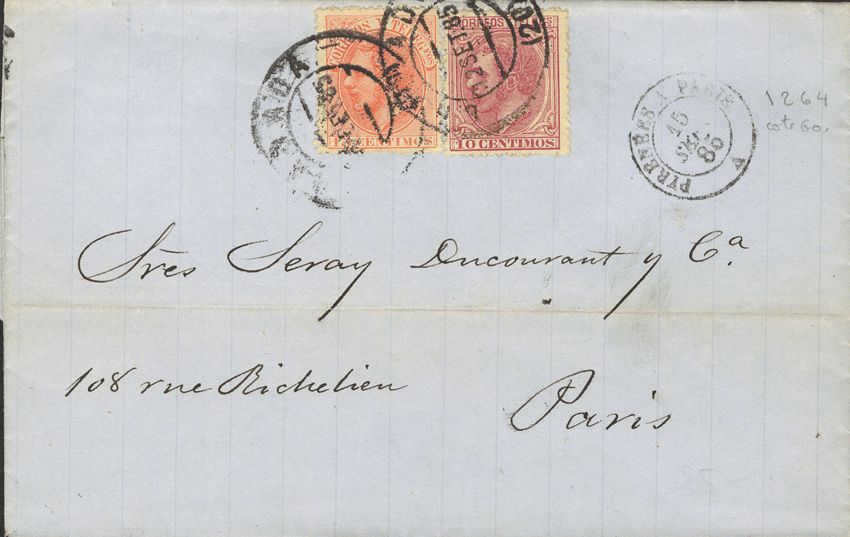 CORREOS Y TELEGFOS
15 CENTIMOS
CORREOS
10 CENTIMOS
12 SET 85
(20)
PYRENEES A PARIS
15
SEPT
85
1264
cote 60.
Sres Seray Ducourant y Cª.
108 rue Richelieu
Paris